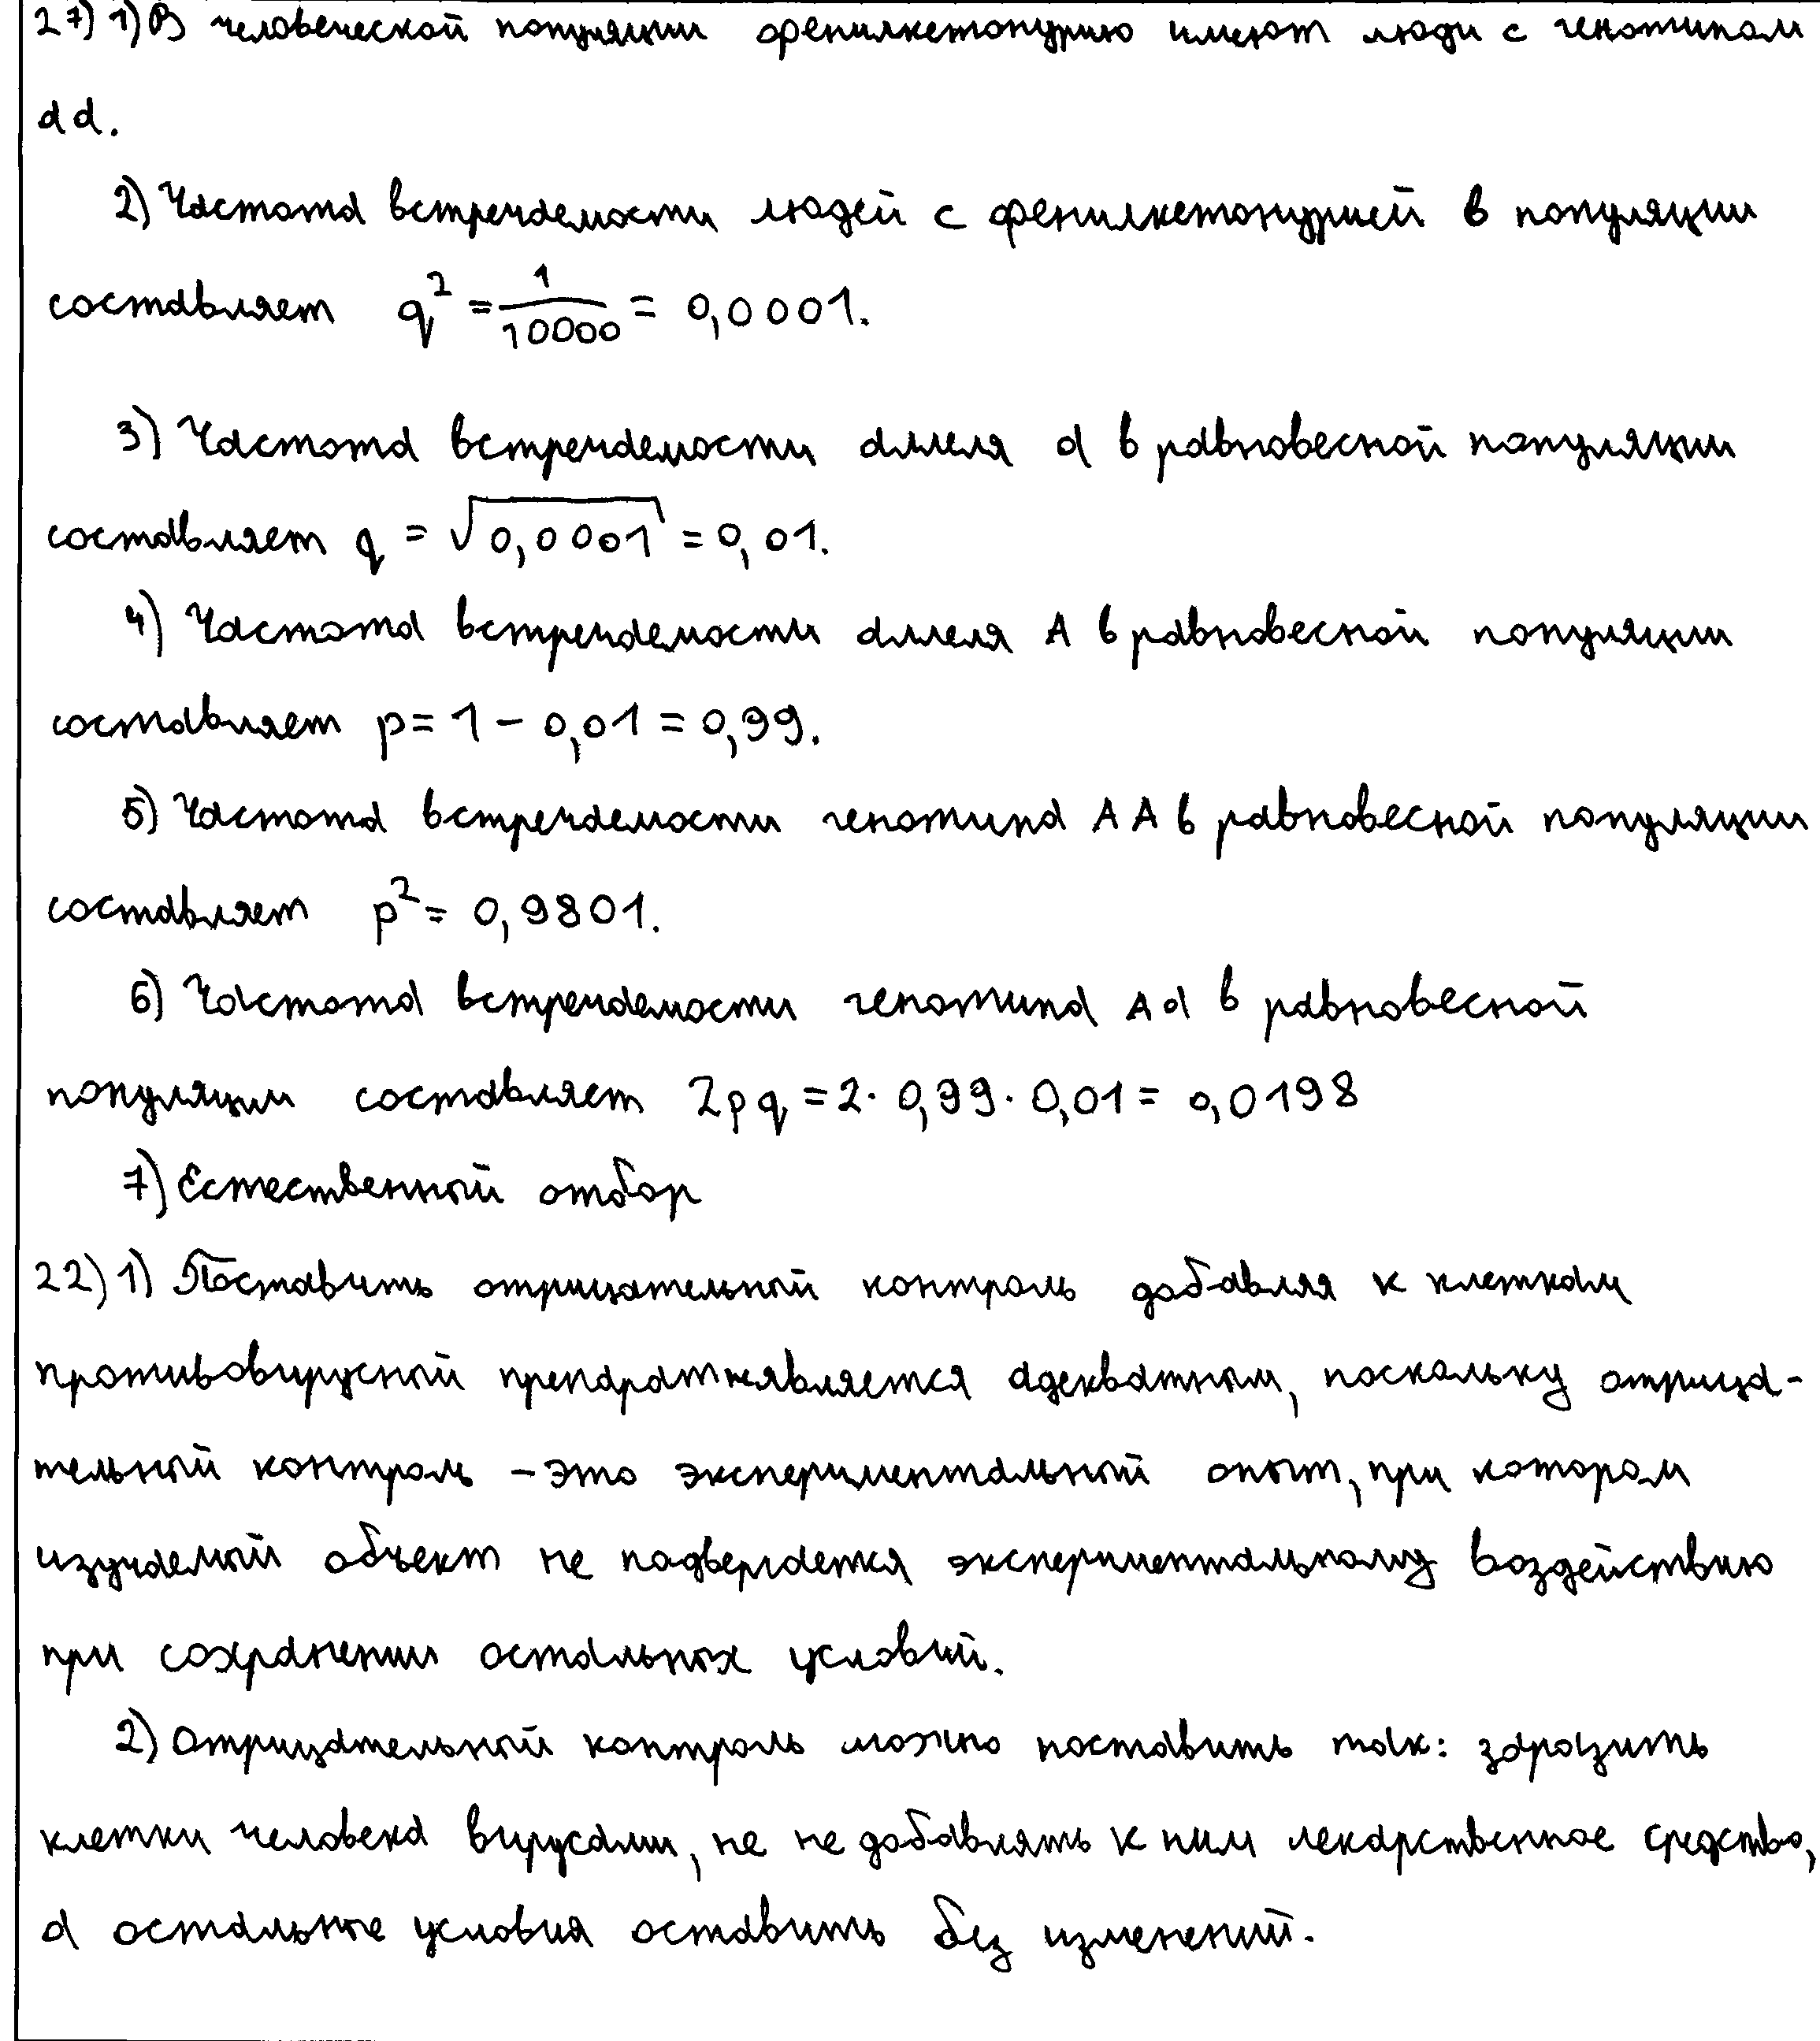 27) 1) В человеческой популяции фенилкетонурию имеют люди с генотипом
aa.
2) Частота встречаемости людей с фенилкетонурией в популяции
составляет q² = 1/10000 = 0,0001.
3) Частота встречаемости аллеля a в равновесной популяции
составляет q = √0,0001 = 0,01.
4) Частота встречаемости аллеля A в равновесной популяции
составляет p = 1 - 0,01 = 0,99.
5) Частота встречаемости генотипа AA в равновесной популяции
составляет p² = 0,9801.
6) Частота встречаемости генотипа Aa в равновесной
популяции составляет 2pq = 2 · 0,99 · 0,01 = 0,0198
7) Естественный отбор
22) 1) Поставить отрицательный контроль добавляя к клеткам
противовирусный препарат является адекватным, поскольку отрица-
тельный контроль - это экспериментальный опыт, при котором
изучаемый объект не подвергается экспериментальному воздействию
при сохранении остальных условий.
2) Отрицательный контроль можно поставить так: заразить
клетки человека вирусами, не не добавлять к ним лекарственное средство,
а остальные условия оставить без изменений.